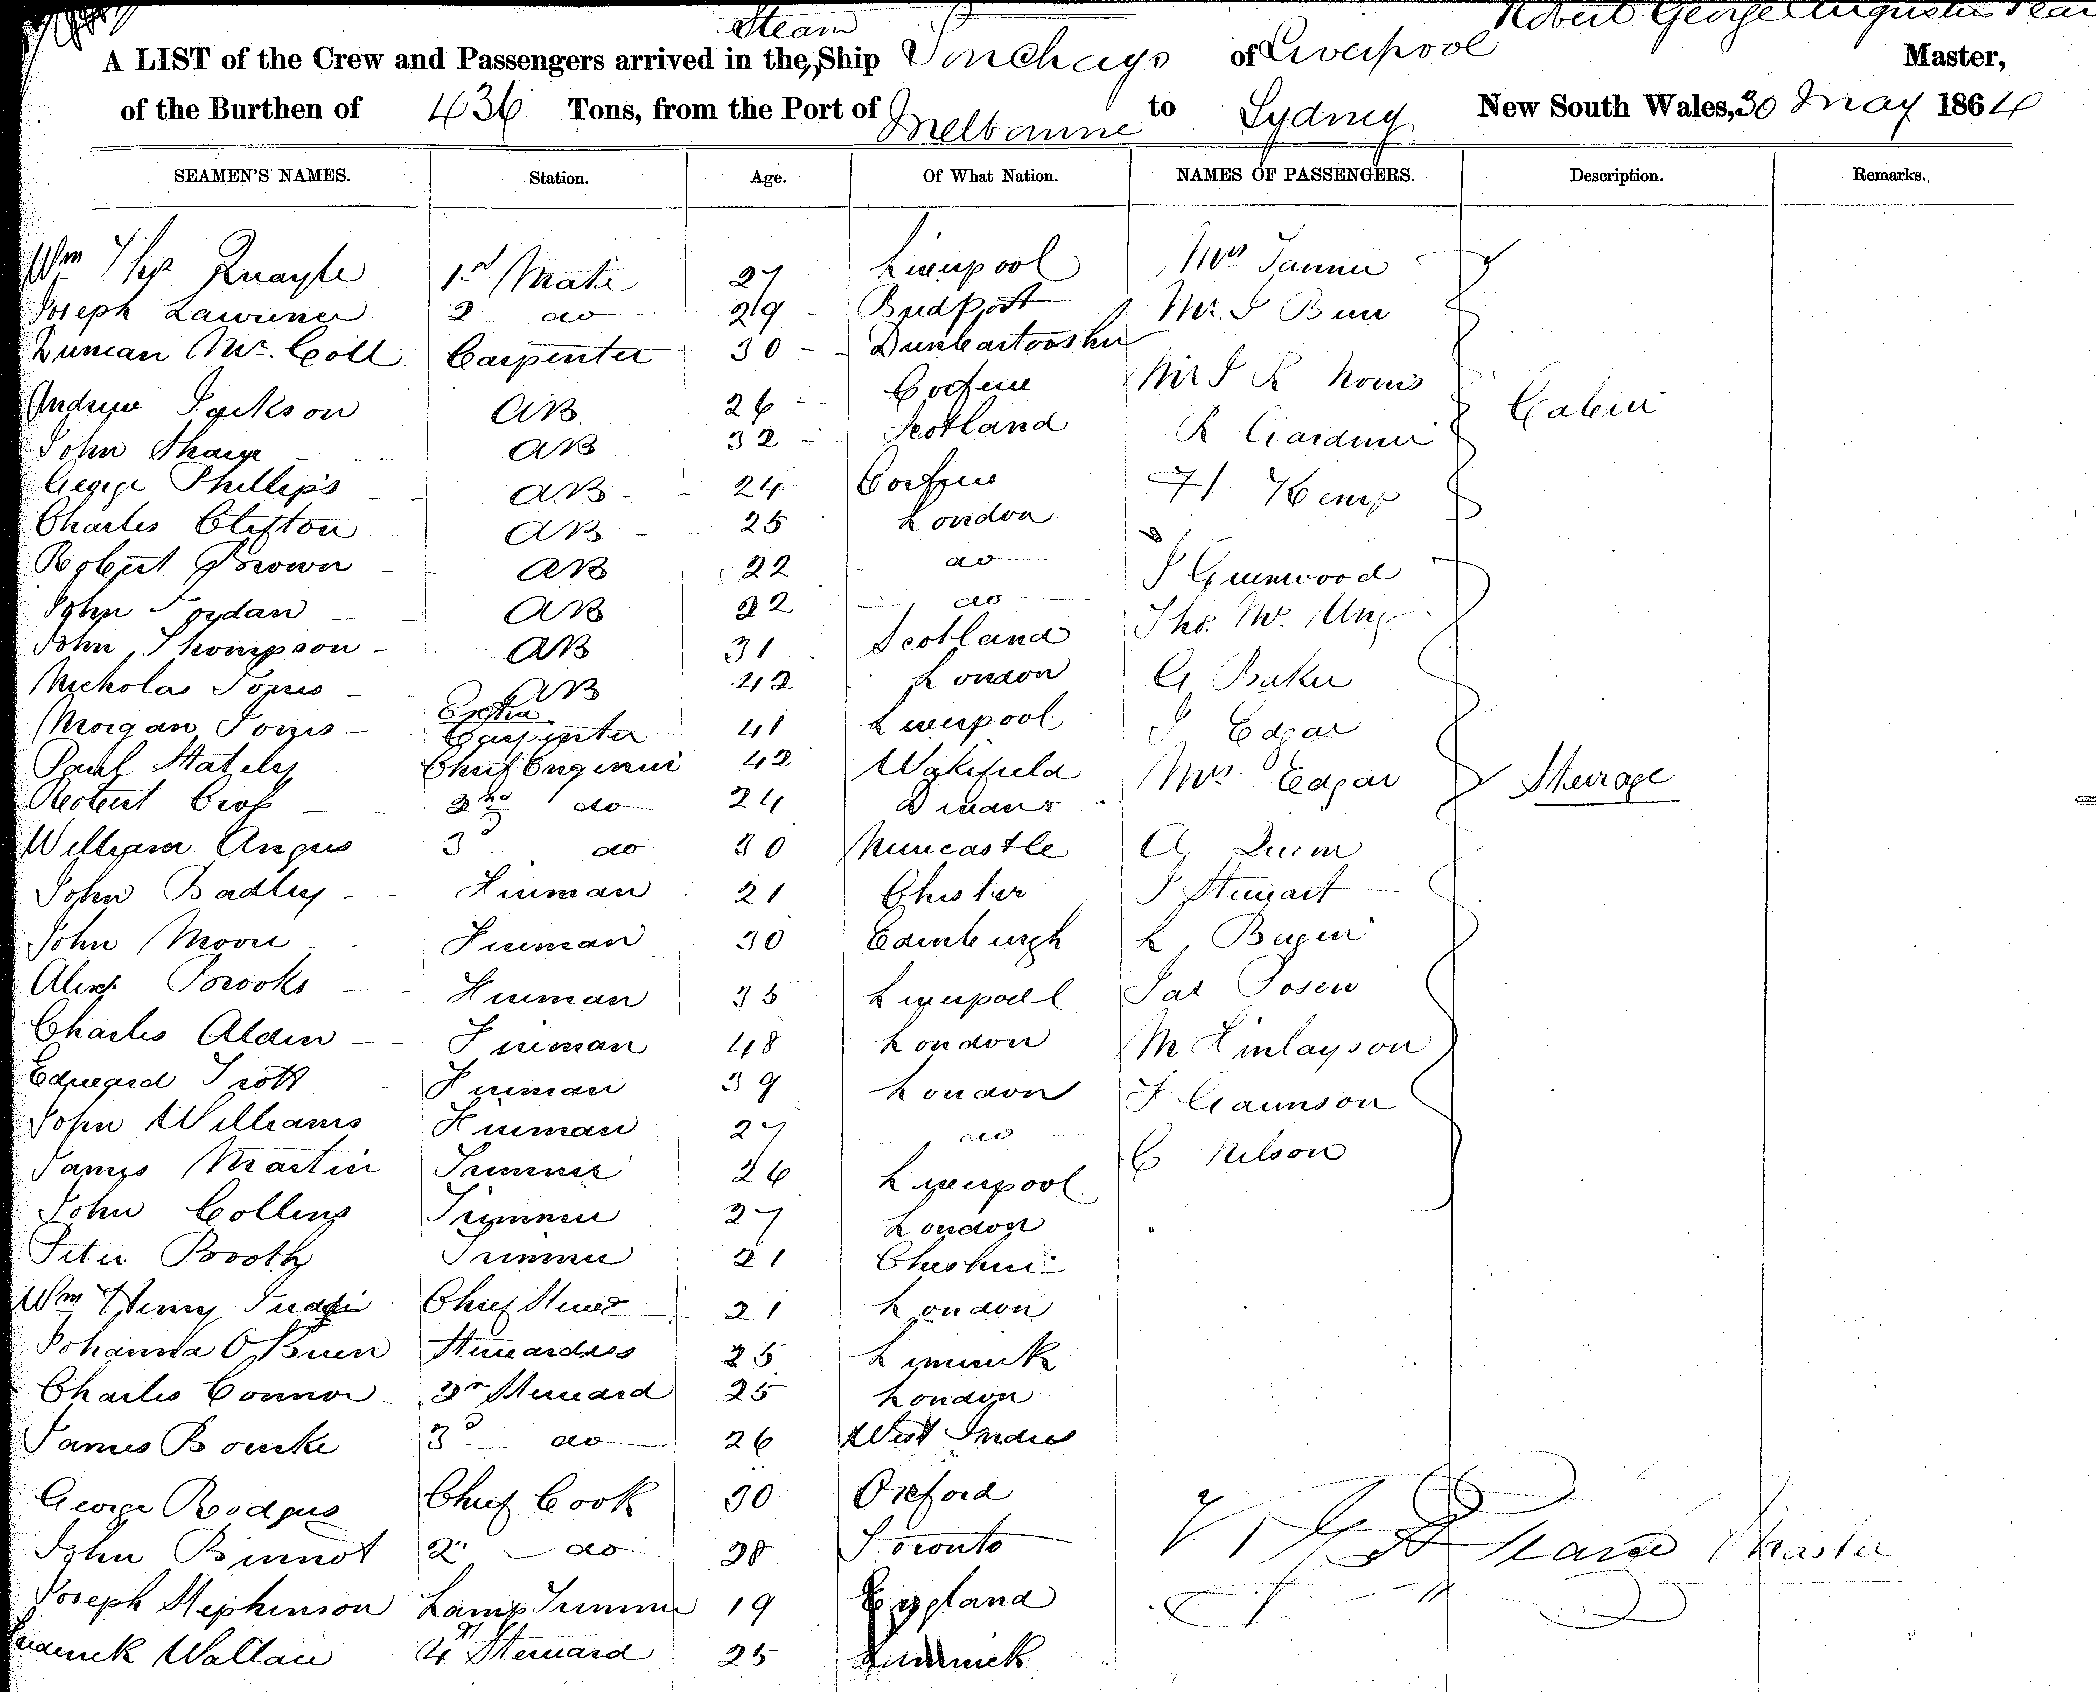 Steam Robert George Augustus
A LIST of the Crew and Passengers arrived in the Ship Sonchays of Liverpool Master,
of the Burthen of 436 Tons, from the Port of Melbourne to Sydney New South Wales, 30 May 1864
SEAMEN'S NAMES. Station. Age. Of What Nation. NAMES OF PASSENGERS. Description. Remarks.
Wm Thos Quayle 1st Mate 27 Liverpool Mrs Tanner
Joseph Lawrence 2 do 29 Bridport Mr. J
Duncan McColl Carpenter 30 Dunbartonshire
Andrew Jackson AB 26 Mr J R Norris Cabin
John Sharp AB 32 Scotland R Gardiner
George Phillips AB 24 H Kemp
Charles Clifton AB 25 London
Robert Brown AB 22 do J Greenwood
John Jordan AB 22 do Thos.
John Thompson AB 31 Scotland
Nicholas Jones AB 42 London G Baker
Morgan Jones Extra Carpenter 41 Liverpool J Edgar
Paul Stately Chief Engineer 42 Wakefield Mrs Edgar Steerage
Robert 2nd do 24
William Angus 3d do 30 Newcastle A Quinn
John Badley Fireman 21 Chester J Stewart
John Moore Fireman 30 Edinburgh L
Alexr Brooks Fireman 35 Liverpool Jas
Charles Alden Fireman 48 London M Finlayson
Edward Trott Fireman 39 London J Gaunson
John Williams Fireman 27 do
James Martin Trimmer 26 Liverpool C Nelson
John Collins Trimmer 27 London
Peter Booth Trimmer 21 Cheshire
Wm Henry Chief Stewd 21 London
Johanna O'Brien Stewardess 25 Limerick
Charles Connor 2nd Steward 25 London
James Bourke 3d do 26 West Indies
George Rodgers Chief Cook 30 Oxford
John Binnot 2" do 28 Toronto Master
Joseph Stephenson Lamp Trimmer 19 England
Frederick Wallace 4th Steward 25 Limerick